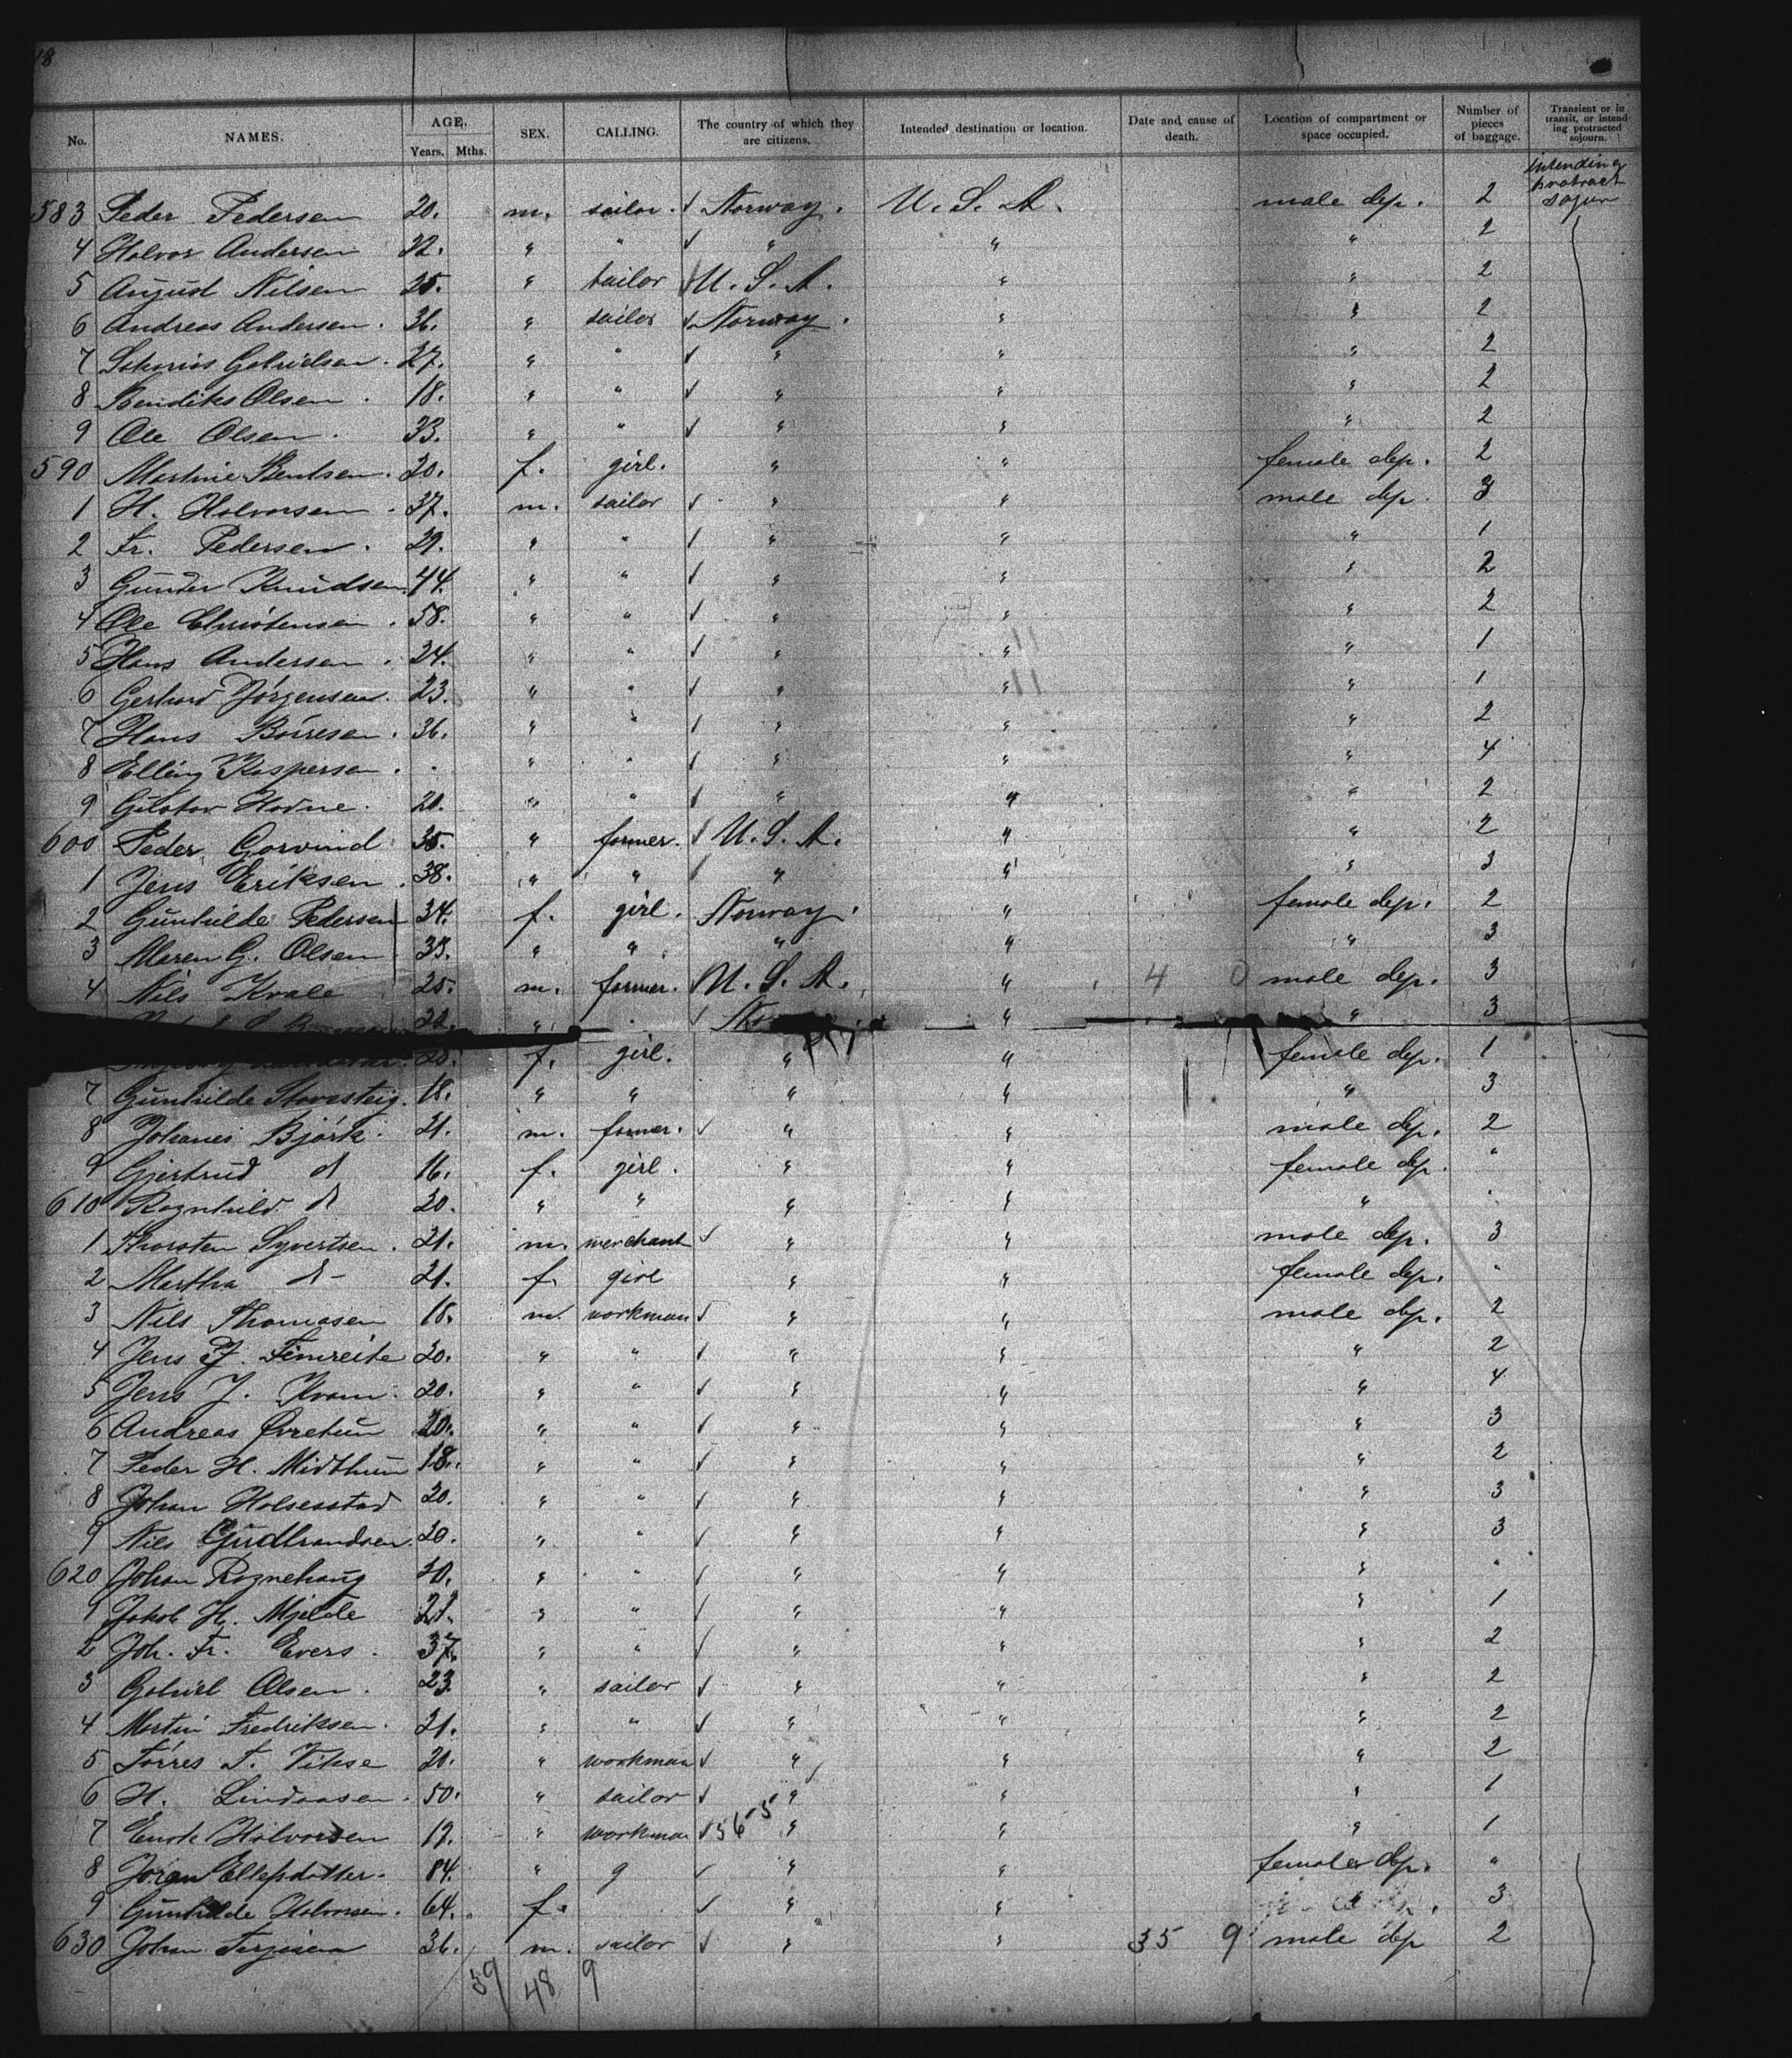 18
No. NAMES. AGE. Years. Mths. SEX. CALLING. The country of which they are citizens. Intended destination or location. Date and cause of death. Location of compartment or space occupied. Number of pieces of baggage. Transient or in transit, or intending protracted sojourn.
intending protract sojurn
583 Peder Pedersen 20. m. sailor. ✓ Norway. U. S. A. male dep. 2
4 Halvor Andersen 22. " " ✓ " " " 2
5 August Nilsen 25. " tailor ✓ U. S. A. " " 2
6 Andreas Andersen. 36. " sailor ✓ Norway. " " 2
7 Sakarias Gabrielsen. 27. " " ✓ " " " 2
8 Bendiks Olsen. 18. " " ✓ " " " 2
9 Ole Olsen. 33. " " ✓ " " " 2
590 Martine Bentsen. 20. f. girl. " " female dep. 2
1 H. Halvorsen 37. m. sailor ✓ " " male dep. 3
2 Fr. Pedersen. 29. " " ✓ " " " 1
3 Gunder Knudsen. 44. " " ✓ " " " 2
4 Ole Christensen. 58. " " ✓ " " " 2
5 Hans Andersen. 24. " " ✓ " " " 1
6 Gerhard Jörgensen. 23. " " ✓ " " " 1
7 Hans Boiresen. 36. " " ✓ " " " 2
8 Elling Kaspersen. . " " ✓ " " " 4
9 Gustav Hodne. 20. " " ✓ " " " 2
600 Peder Gorvind 35. " farmer. ✓ U. S. A. " " 2
1 Jens Eriksen. 38. " " ✓ " " " 3
2 Gunhilde Pedersen 34. f. girl. Norway. " female dep. 2
3 Maren G. Olsen 33. " " " " " 3
4 Nils Kvale 25. m. farmer. U. S. A. " 4 0 male dep. 3
" . ✓ " " 3
20. f. girl. " " female dep. 1
7 Gunhilde 18. " " " " " 3
8 Johanes Björk. 21. m. farmer. ✓ " " male dep. 2
9 Gjertrud d 16. f. girl. " " female dep. "
610 Ragnhild d 20. " " " " " .
1 Thorsten Syvertsen. 21. m. merchant ✓ " " male dep. 3
2 Martha d - 21. f. girl " " female dep. "
3 Nils Thomasen 18. m. workman ✓ " " male dep. 2
4 Jens J. Fimreite 20. " " ✓ " " " 2
5 Jens J. Kvam. 20. " " ✓ " " " 4
6 Andreas Øvretun 20. " " ✓ " " " 3
7 Peder H. Midthun 18. " " ✓ " " " 2
8 Johan 20. " " ✓ " " " 3
9 Nils Gudbrandsen. 20. " " ✓ " " " 3
620 Johan Rognehaug " " ✓ " " " "
1 Jakob H. Mjelde 21. " " ✓ " " " 1
2 Joh. Fr. Evers. 37. " " ✓ " " " 2
3 Gabriel Olsen. 23 " sailor ✓ " " " 2
4 Martin Fredriksen. 21. " " ✓ " " " 2
5 Törres T. Vikse 20. " workman ✓ " " " 2
6 H. Lindaasen. 50. " sailor ✓ " " " 1
7 Enok Halvorsen 19. " workman ✓ 56-5 " " " 1
8 Joran Ellefsdatter. 84. " 9 ✓ " " female dep. "
9 Gunhilde Halvorsen. 64. f. ✓ " " 3
630 Johan Terjesen 36. m. sailor ✓ " " 35 9 male dep 2
39 48 9